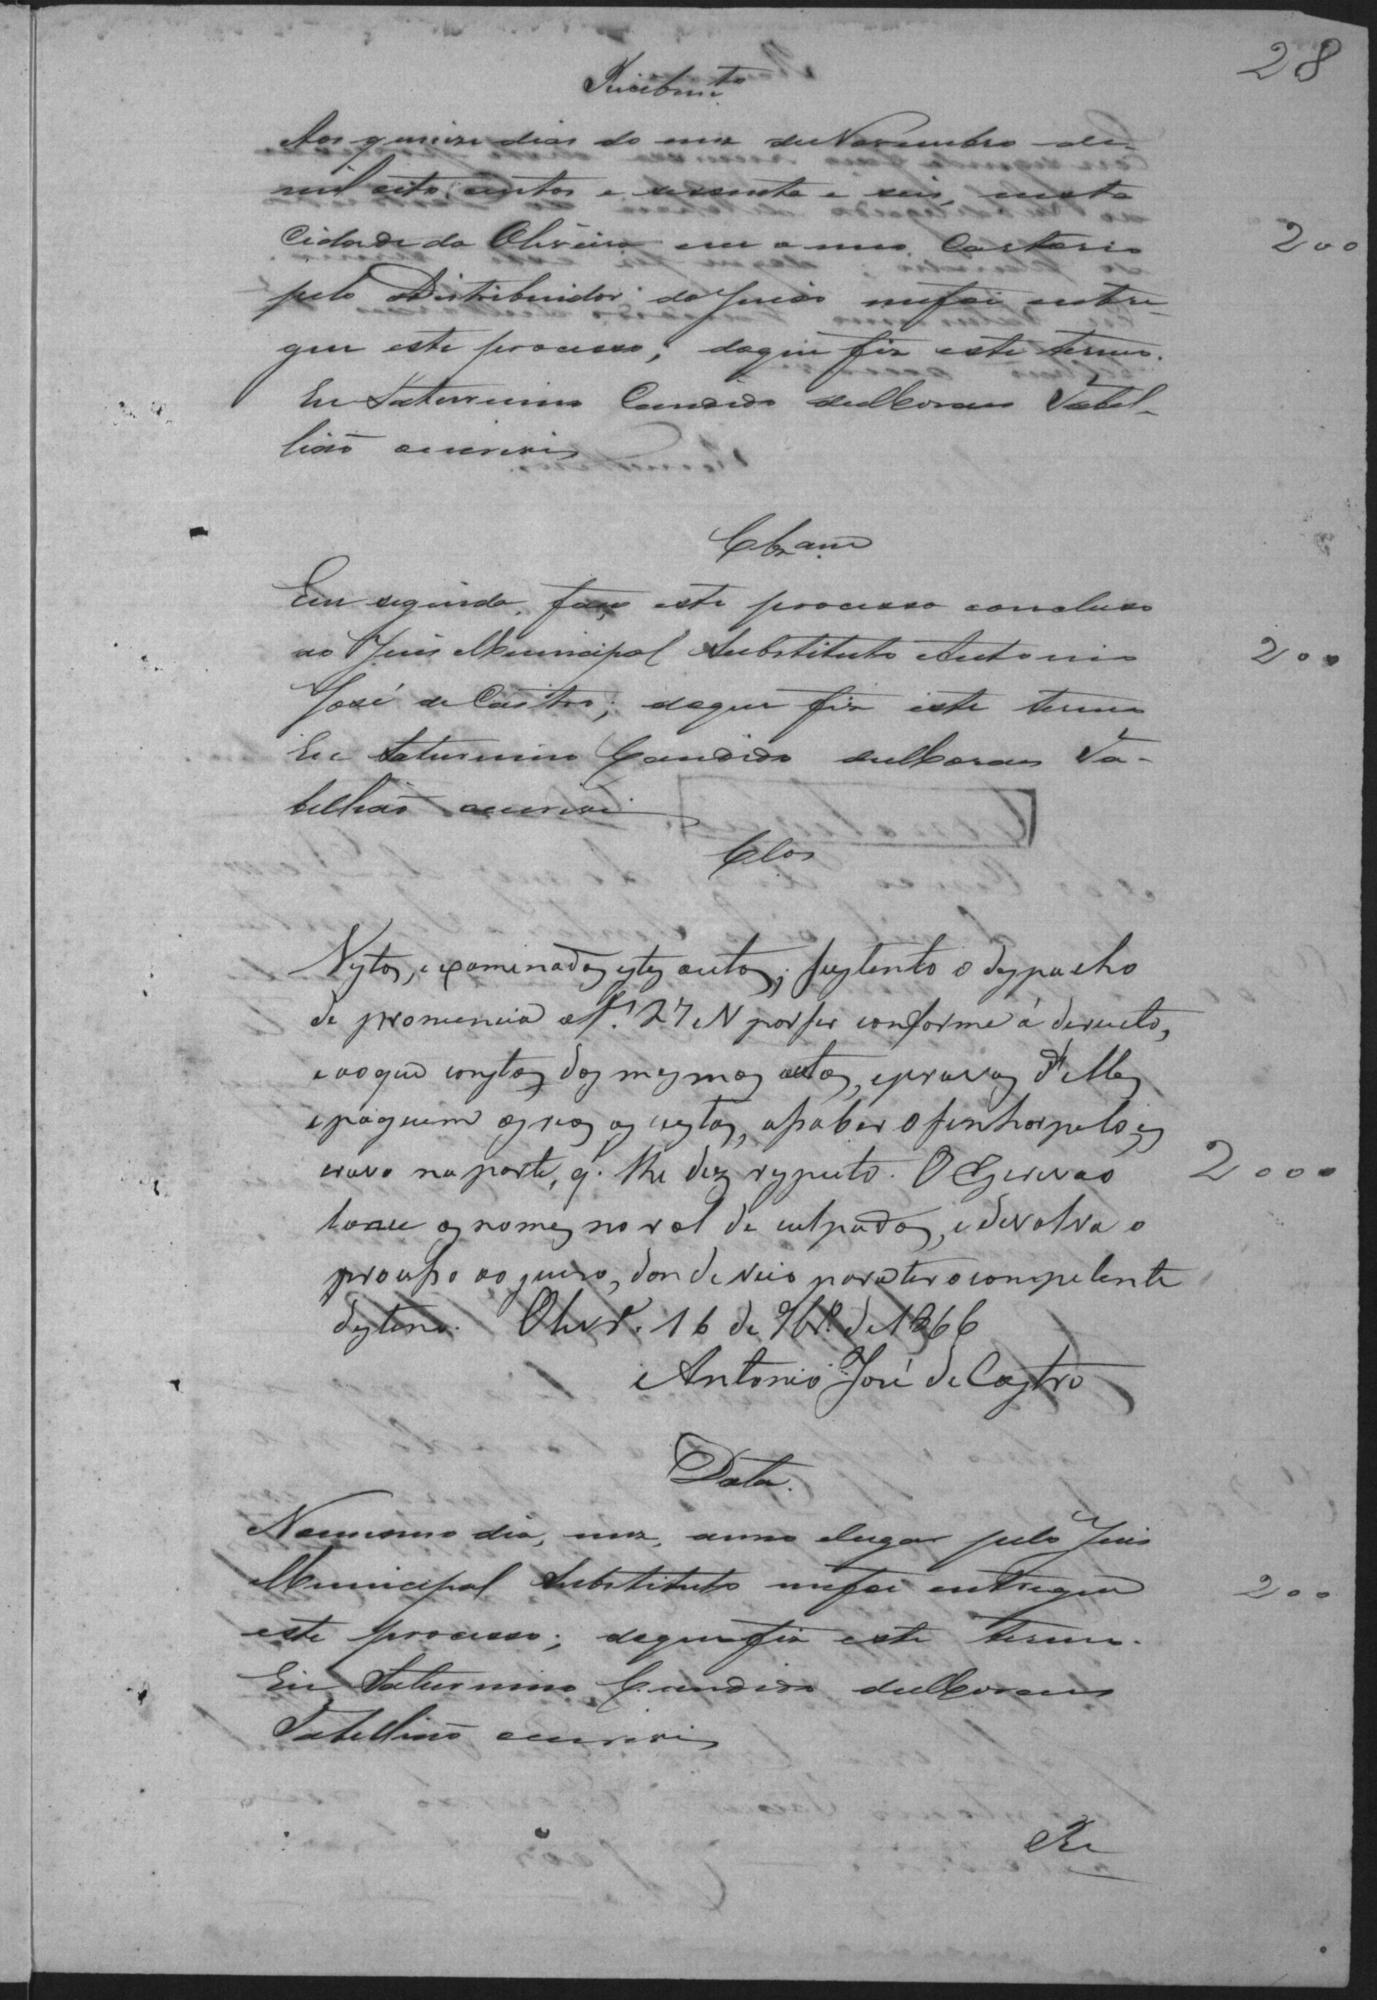 28
Recebim.to
Aos quinze dias do mez de Novembro de
mil oito centos e sessenta e seis, nesta
Cidade da Oliveira em o meu Cartorio
200
pelo Distribuidor do Juizo me foi entre-
gue este processo; do que fiz este termo.
Eu Saturnino Candido de Moraes Tabel-
lião escrevi
Clzam
Em seguida, faço este processo concluso
ao Juis Municipal Substituto Antonio
200
José de Castro; do que fiz este termo
Eu Saturnino Candido de Moraes Ta-
bellião escrevi
Clos
Vistos, e examinados estes autos, sustento o despacho
de pronuncia af. 27 e V por ser conforme á dereito,
e ao que consta dos mesmos autos, e provas d'elles
e paguem os reos as custas, a saber o senhor pelo es
cravo na parte, q. lhe diz respeito. O Escrivão
2000
lance os nomes no rol de culpados, e devolva o
processo ao juiso, donde veio para ter o competente
destino. Olivr.a 16 de 9br.o de 1866
Antonio José de Castro
Data.
No mesmo dia, mez, anno e lugar pelo Juis
Municipal Substituto me foi entregue
200
este processo; do que fiz este termo.
Eu Saturnino Candido de Moraes
Tabellião escrevi
Re